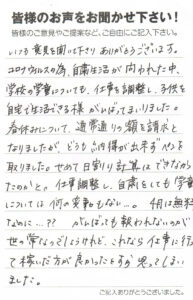 皆様のお声をお聞かせ下さい！
皆様のご意見やご提案など、ご自由にご記入下さい。
いつも意見を聞いて下さりありがとうございます。
コロナウィルスの為、自粛生活が問われた中、
学校の学童についても、仕事を調整し、子供を
自宅で生活できる様がんばってまいりました。
春休みについて、通常通りの額を請求と
なりましたが、どうも納得が出来ずペンを
取りました。せめて日割り計算はできなかっ
たのかと。仕事調整し、自粛をしても学童
については何の変動もない…。4月は無料
なのに…?? がんばっても報われないのが
世の常なんでしょうけれど、これなら仕事に行っ
て稼いだ方が良かったとすら思ってしまい
ました。
ご記入ありがとうございました。